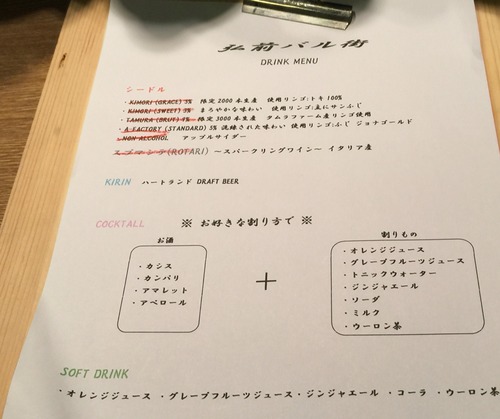 弘前バル街
DRINK MENU
シードル
・KIMORI (GRACE) 3% 限定2000本生産 使用リンゴ:トキ100%
・KIMORI (SWEET) 3% まろやかな味わい 使用リンゴ:主にサンふじ
・TAMURA (BRUT) 7% 限定3000本生産 タムラファーム産リンゴ使用
・A-FACTORY (STANDARD) 5% 洗練された味わい 使用リンゴ:ふじ ジョナゴールド
・NON ALCOHOL アップルサイダー
スプマンテ(ROTARI) ～スパークリングワイン～ イタリア産
KIRIN ハートランド DRAFT BEER
COCKTALL ※ お好きな割り方で ※
お酒
・カシス
・カンパリ
・アマレット
・アペロール
+
割りもの
・オレンジジュース
・グレープフルーツジュース
・トニックウォーター
・ジンジャエール
・ソーダ
・ミルク
・ウーロン茶
SOFT DRINK
・オレンジジュース ・グレープフルーツジュース・ジンジャエール ・コーラ ・ウーロン茶